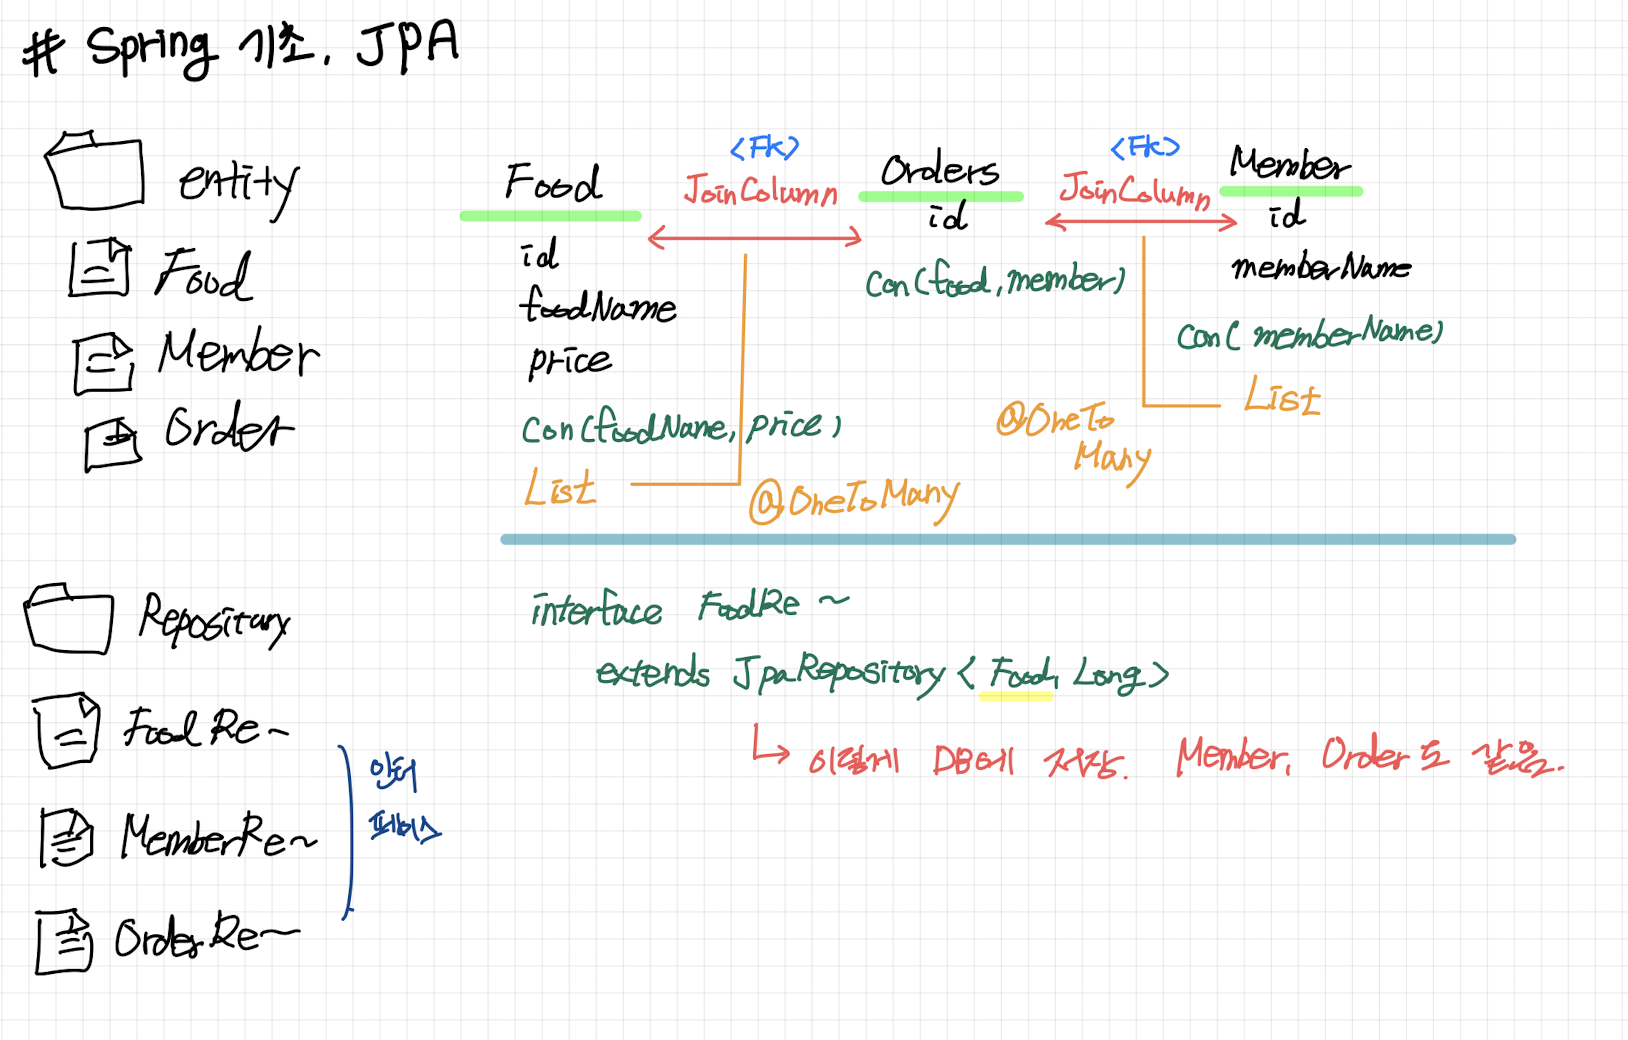 # Spring 기초. JPA
entity
Food
Member
Order
Food
id
foodName
price
con(foodName, price)
List
@OneToMany
<FK>
JoinColumn
Orders
id
con(food, member)
<FK>
JoinColumn
Member
id
memberName
con( memberName)
List
@OneTo
Many
Repository
FoodRe~
MemberRe~
OrderRe~
인터
페이스
interface FoodRe~
extends JpaRepository < Food, Long>
이렇게 DB에 저장. Member, Order도 같음.